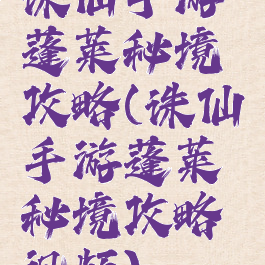 诛仙手游
蓬莱秘境
攻略(诛仙
手游蓬莱
秘境攻略
视频)